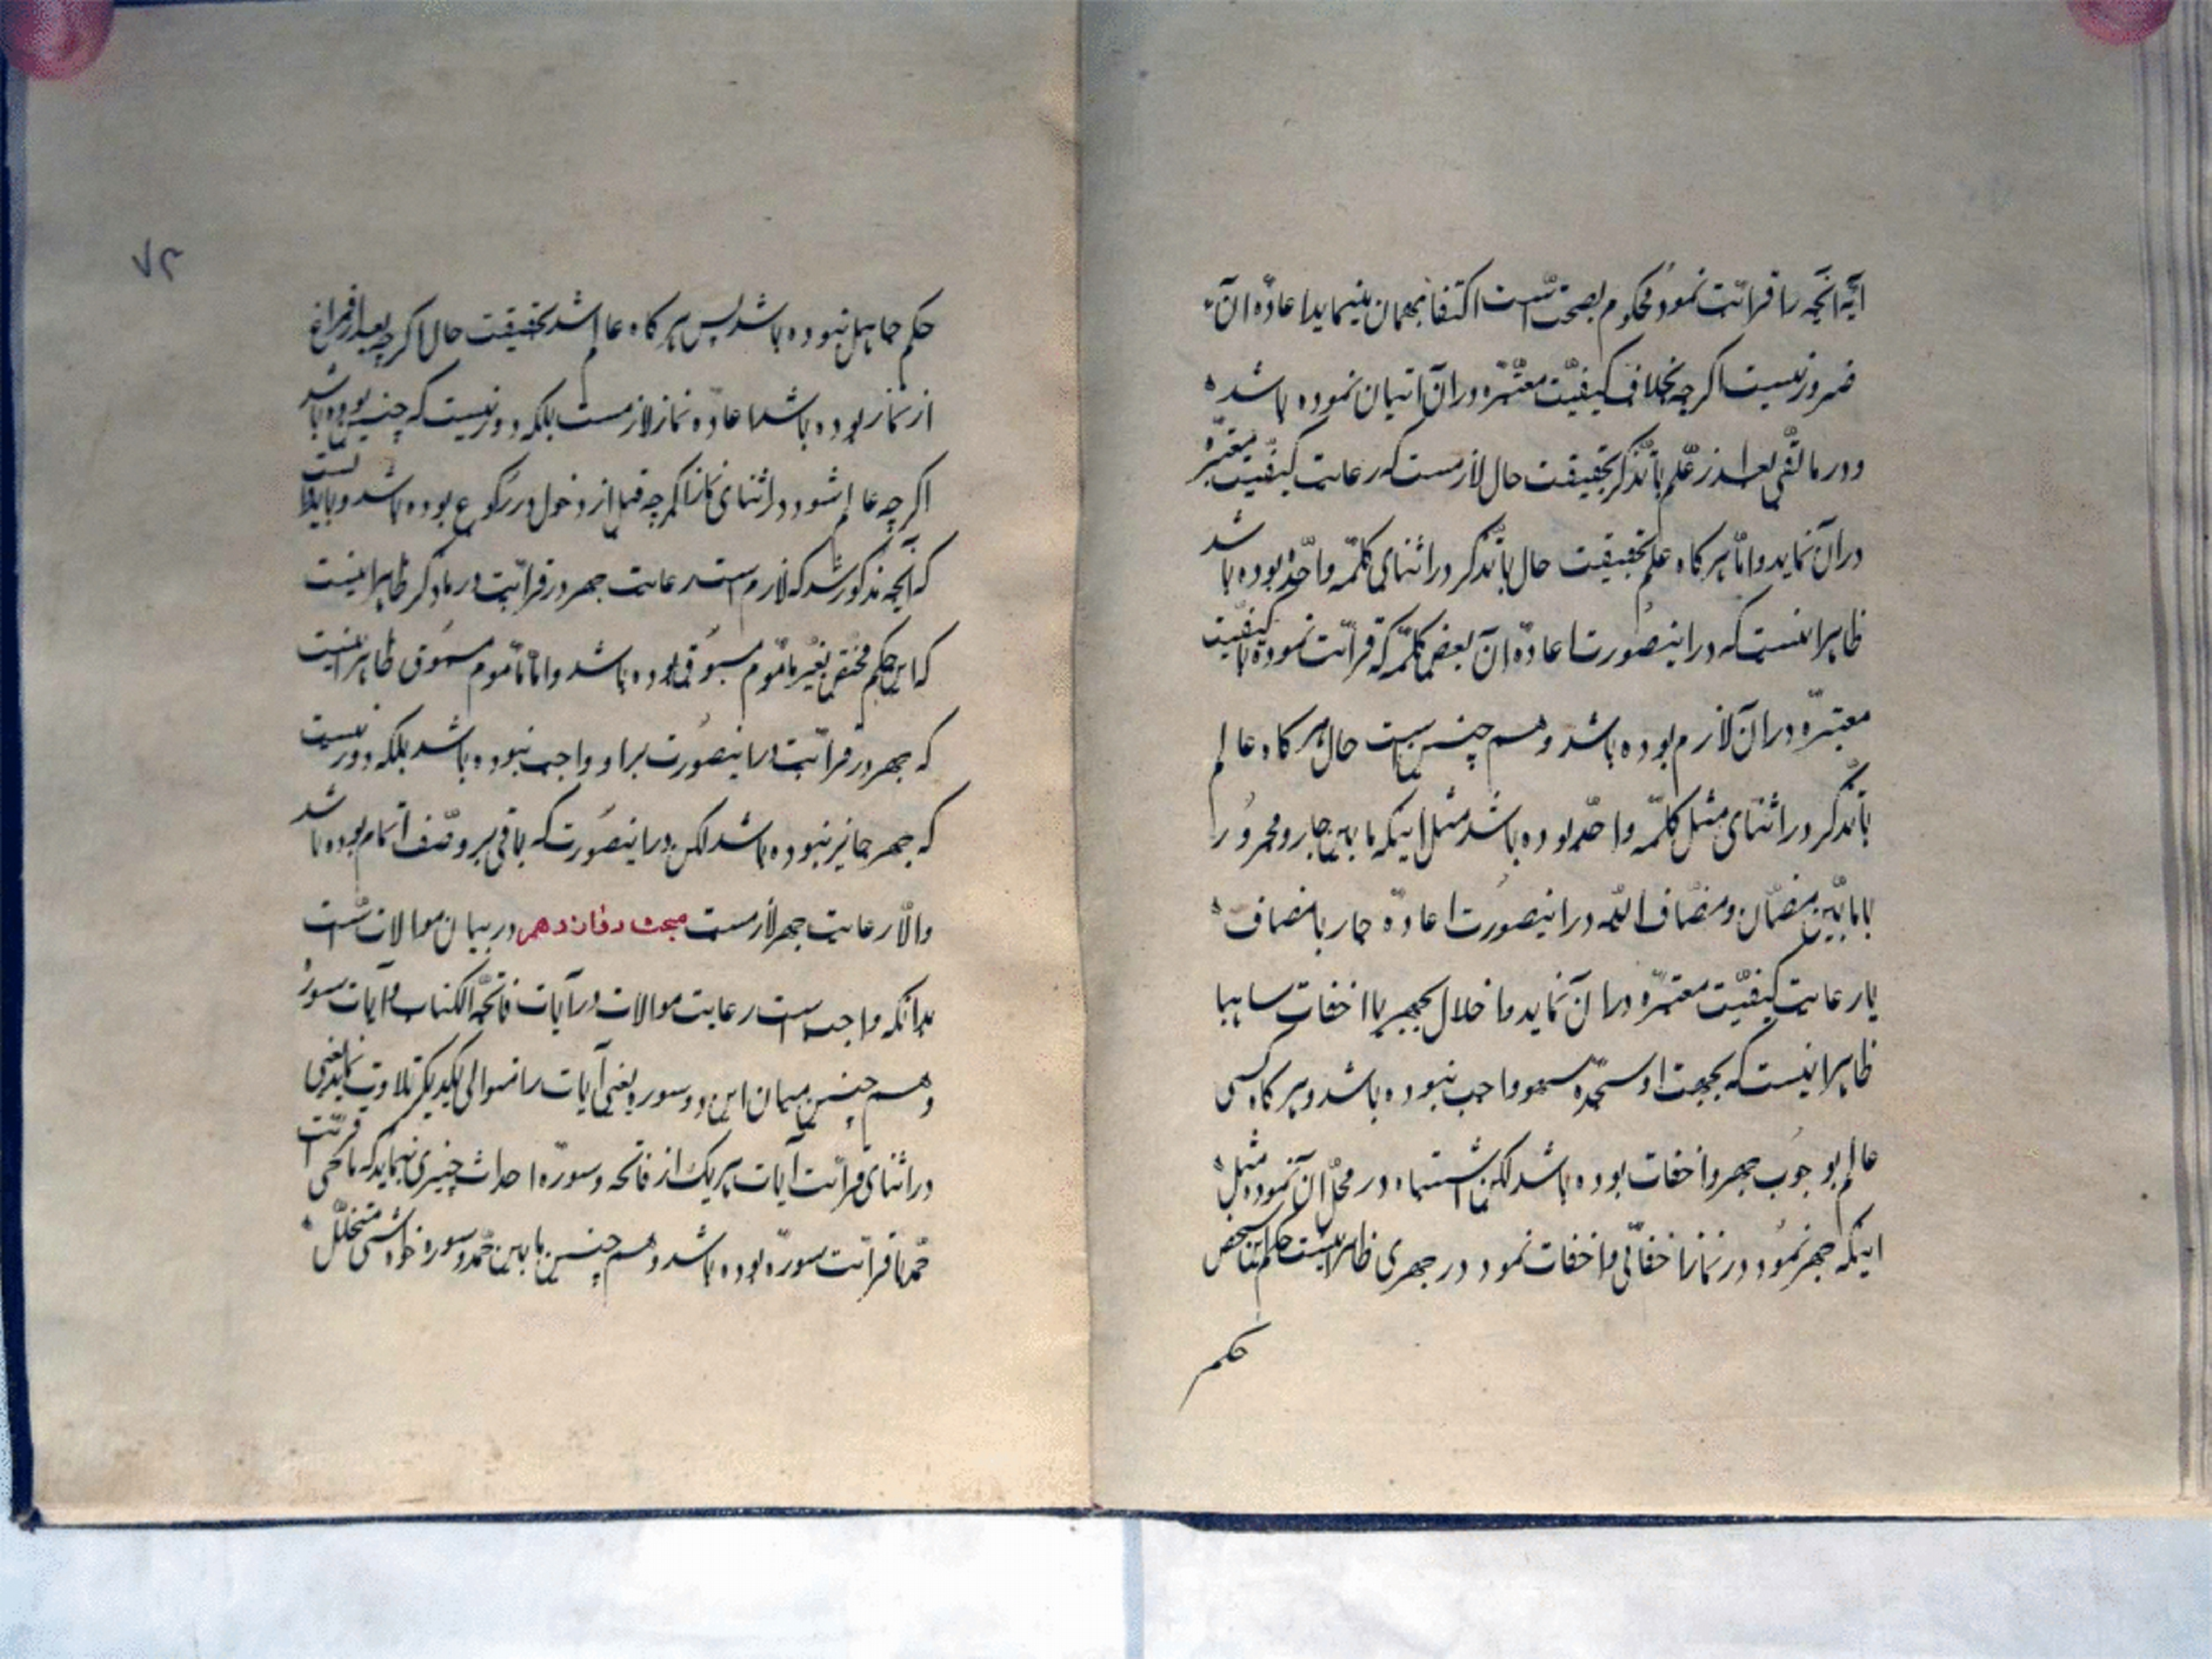 آیه آنچه را قرائت نمود محکوم بصحت است اکتفا بهمان مینماید اعاده آن
ضرور نیست اگرچه بخلاف کیفیت معتبره در آن اتیان نموده باشد
و در مابقی بعد از علم یا تذکر بحقیقت حال لازمست که رعایت کیفیت معتبره
در آن نماید و اما هرکاه علم بحقیقت حال یا تذکر در اثنای کلمه واحده بوده باشد
ظاهر اینست که در اینصورت اعاده آن بعض کلمه که قرائت نموده با کیفیت
معتبره در آن لازم بوده باشد و همچنین است حال هرکاه عالم
یا تذکر در اثنای مثل کلمه واحده بوده باشد مثل اینکه ما بین جار و مجرور
یا مابین مضاف و مضاف الیه در اینصورت اعاده جار یا مضاف
با رعایت کیفیت معتبره در آن نماید و اخلال بجهر یا اخفات ساهیا
ظاهر اینست که بجهت او سجده سهو واجب نبوده باشد و هرکاه کسی
عالم بوجوب جهر و اخفات بوده باشد لکن اشتباه در محل آن نموده مثل
اینکه جهر نمود در نماز اخفاتی و اخفات نمود در جهری ظاهر اینست حکم این شخص
حکم
۷۲
حکم جاهل نبوده باشد پس هرکاه عالم شد بحقیقت حال اکرچه بعد از فراغ
از نماز بوده باشد اعاده نماز لازمست بلکه دور نیست که چنین بوده باشد
اکرچه عالم شود در اثنای نماز اکرچه قبل از دخول در رکوع بوده باشد و باید دانست
که آنچه مذکور شد که لازم است رعایت جهر در قرائت در ما ذکر ظاهر اینست
که این حکم مختص بغیر ماموم مسبوق بوده باشد و اما ماموم مسبوق ظاهر اینست
که جهر در قرائت در اینصورت بر او واجب نبوده باشد بلکه دور نیست
که جهر جایز نبوده باشد لکن در اینصورت که باقی بر وصف ائتمام بوده باشد
والا رعایت جهر لازمست مبحث دوازدهم در بیان موالات است
بدانکه واجب است رعایت موالات در آیات فاتحة الکتاب و آیات سوره
و همچنین میان این دو سوره یعنی آیات را متوالی یکدیکر تلاوت نماید یعنی
در اثنای قرائت آیات هر یک از فاتحه و سوره احداث چیزی ننماید که ماحی قرائت
حمد یا قرائت سوره بوده باشد و همچنین ما بین حمد و سوره خواه شی متخلل